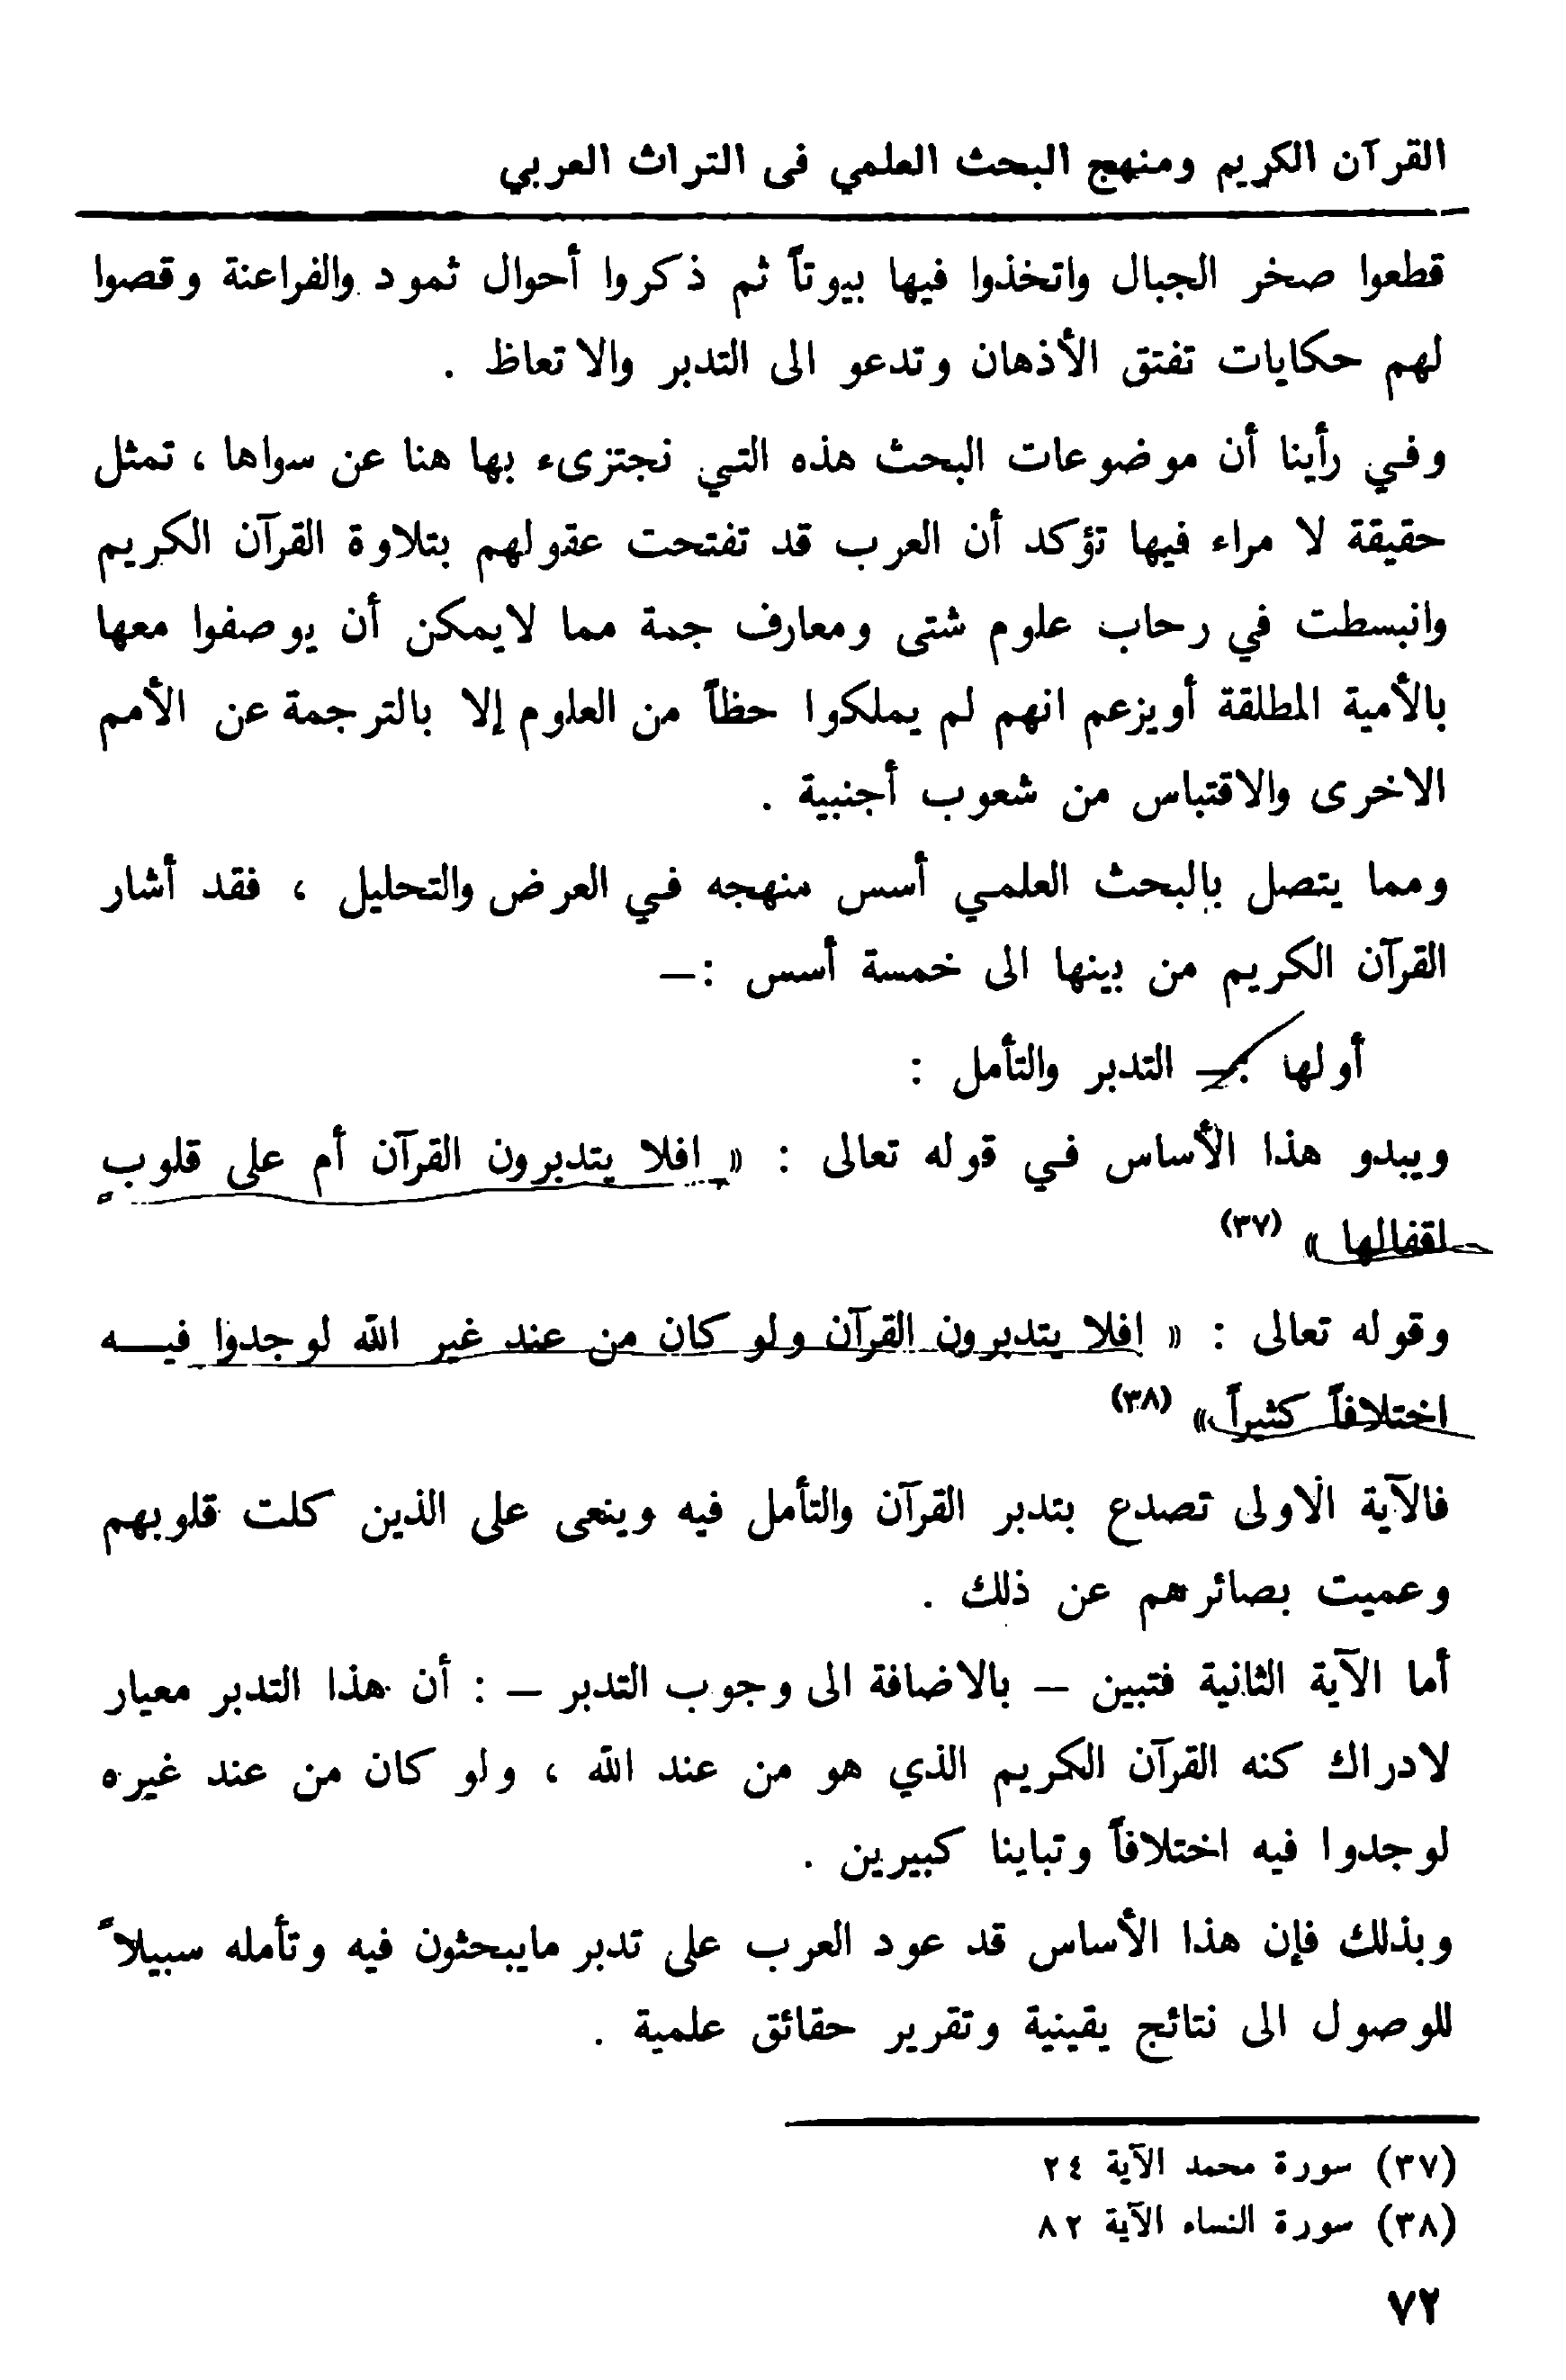 القرآن الكريم ومنهج البحث العلمي فى التراث العربي
قطعوا صخر الجبال واتخذوا فيها بيوتاً ثم ذكروا أحوال ثمود والفراعنة وقصوا
لهم حكايات تفتق الأذهان وتدعو الى التدبر والاتعاظ .
وفي رأينا أن موضوعات البحث هذه التي نجتزىء بها هنا عن سواها ، تمثل
حقيقة لا مراء فيها تؤكد أن العرب قد تفتحت عقولهم بتلاوة القرآن الكريم
وانبسطت في رحاب علوم شتى ومعارف جمة مما لايمكن أن يوصفوا معها
بالأمية المطلقة أويزعم انهم لم يملكوا حظاً من العلوم إلا بالترجمة عن الأمم
الاخرى والاقتباس من شعوب أجنبية .
ومما يتصل بالبحث العلمي أسس منهجه في العرض والتحليل ، فقد أشار
القرآن الكريم من بينها الى خمسة أسس :ـ
أولها :ـ التدبر والتأمل :
ويبدو هذا الأساس في قوله تعالى : « افلا يتدبرون القرآن أم على قلوب
اقفالها » (٣٧)
وقوله تعالى : « افلا يتدبرون القرآن ولو كان من عند غير الله لوجدوا فيـــه
اختلافاً كثيراً » (٣٨)
فالآية الاولى تصدع بتدبر القرآن والتأمل فيه وينعى على الذين كلت قلوبهم
وعميت بصائرهم عن ذلك .
أما الآية الثانية فتبين – بالاضافة الى وجوب التدبر – : أن هذا التدبر معيار
لادراك كنه القرآن الكريم الذي هو من عند الله ، ولو كان من عند غيره
لوجدوا فيه اختلافاً وتباينا كبيرين .
وبذلك فإن هذا الأساس قد عود العرب على تدبر مايبحثون فيه وتأمله سبيلاً
للوصول الى نتائج يقينية وتقرير حقائق علمية .
(٣٧) سورة محمد الآية ٢٤
(٣٨) سورة النساء الآية ٨٢
٧٢